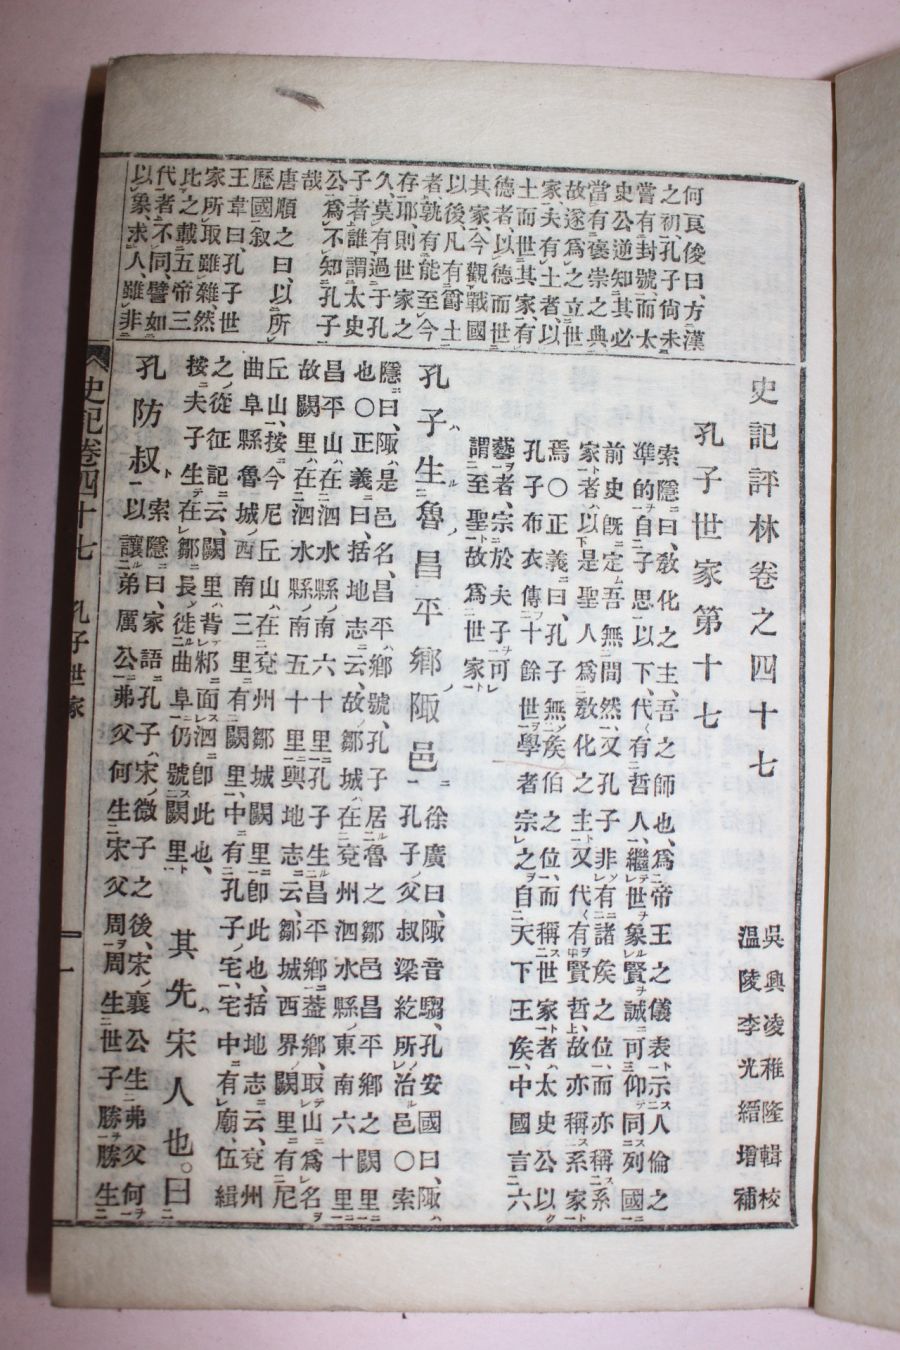 史記評林卷之四十七
吳興凌稚隆輯校
溫陵李光縉增補
孔子世家第十七
索隱曰、教化之主、吾之師也、爲帝王之儀表、示人倫之
準的、自子思以下、代有哲人、繼世象賢、誠可仰同列國
前史既定、吾無間然、又孔子非有諸侯之位、而亦稱系
家者、以是聖人爲教化之主、又代有賢哲、故亦稱系家
焉〇正義曰、孔子無侯伯之位、而稱世家者、太史公以
孔子布衣傳十餘世、學者宗之、自天下王侯、中國言六
藝者、宗於夫子、可
謂至聖、故爲世家
孔子生魯昌平鄉陬邑
徐廣曰、陬音騶、孔安國曰、陬
孔子父叔梁紇所治邑〇索
隱曰、陬是邑名、昌平鄉號、孔子居魯之鄒邑昌平鄉之闕里
也〇正義曰、括地志云、故鄒城在兗州泗水縣東南六十里
昌平山在泗水縣南六十里、孔子生昌平鄉、蓋鄉取山爲名
故闕里在泗水縣南五十里、輿地志云、鄒城西界闕里有尼
丘山、按今尼丘山在兗州鄒城、闕里即此也、括地志云、兗州
曲阜縣魯城西南三里有闕里、中有孔子宅、宅中有廟、伍緝
之從征記云、闕里背邾面泗、即此也、
按夫子生在鄒、長徙曲阜、仍號闕里
其先宋人也。曰
孔防叔
索隱曰、家語孔子宋微子之後、宋襄公生弗父何
以讓弟厲公、弗父何生宋父周、周生世子勝、勝生
何良俊曰、方漢
之初、孔子尙未
嘗有封號、而太
史公逆知其必
當有褒崇之典
故遂爲之立世
家、夫有土者、以
土而世其家、有
德者、以德而世
其家、今觀戰國
以後、凡有爵土
者、孰有能至今
存耶、則世家之
久、莫有過于孔
子者、誰謂太史
公爲不知孔子
哉
唐順之曰、以所
歷國叙
王韋曰、孔子世
家所取雖雜、然
比之戴五帝三
代者、不同、譬如
以象求人、雖非
史記卷四十七　孔子世家
一